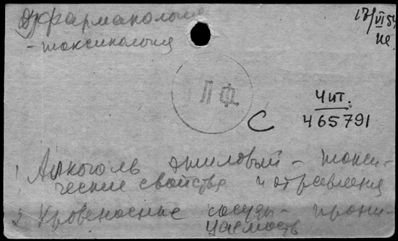 Фармакология
- токсикология
12/VI 54
не.
ЛФ
С
Чит.
465791
1. Алкоголь этиловый - токси-
ческие свойства и отравления
2. Кровеносные сосуды - прони-
цаемость